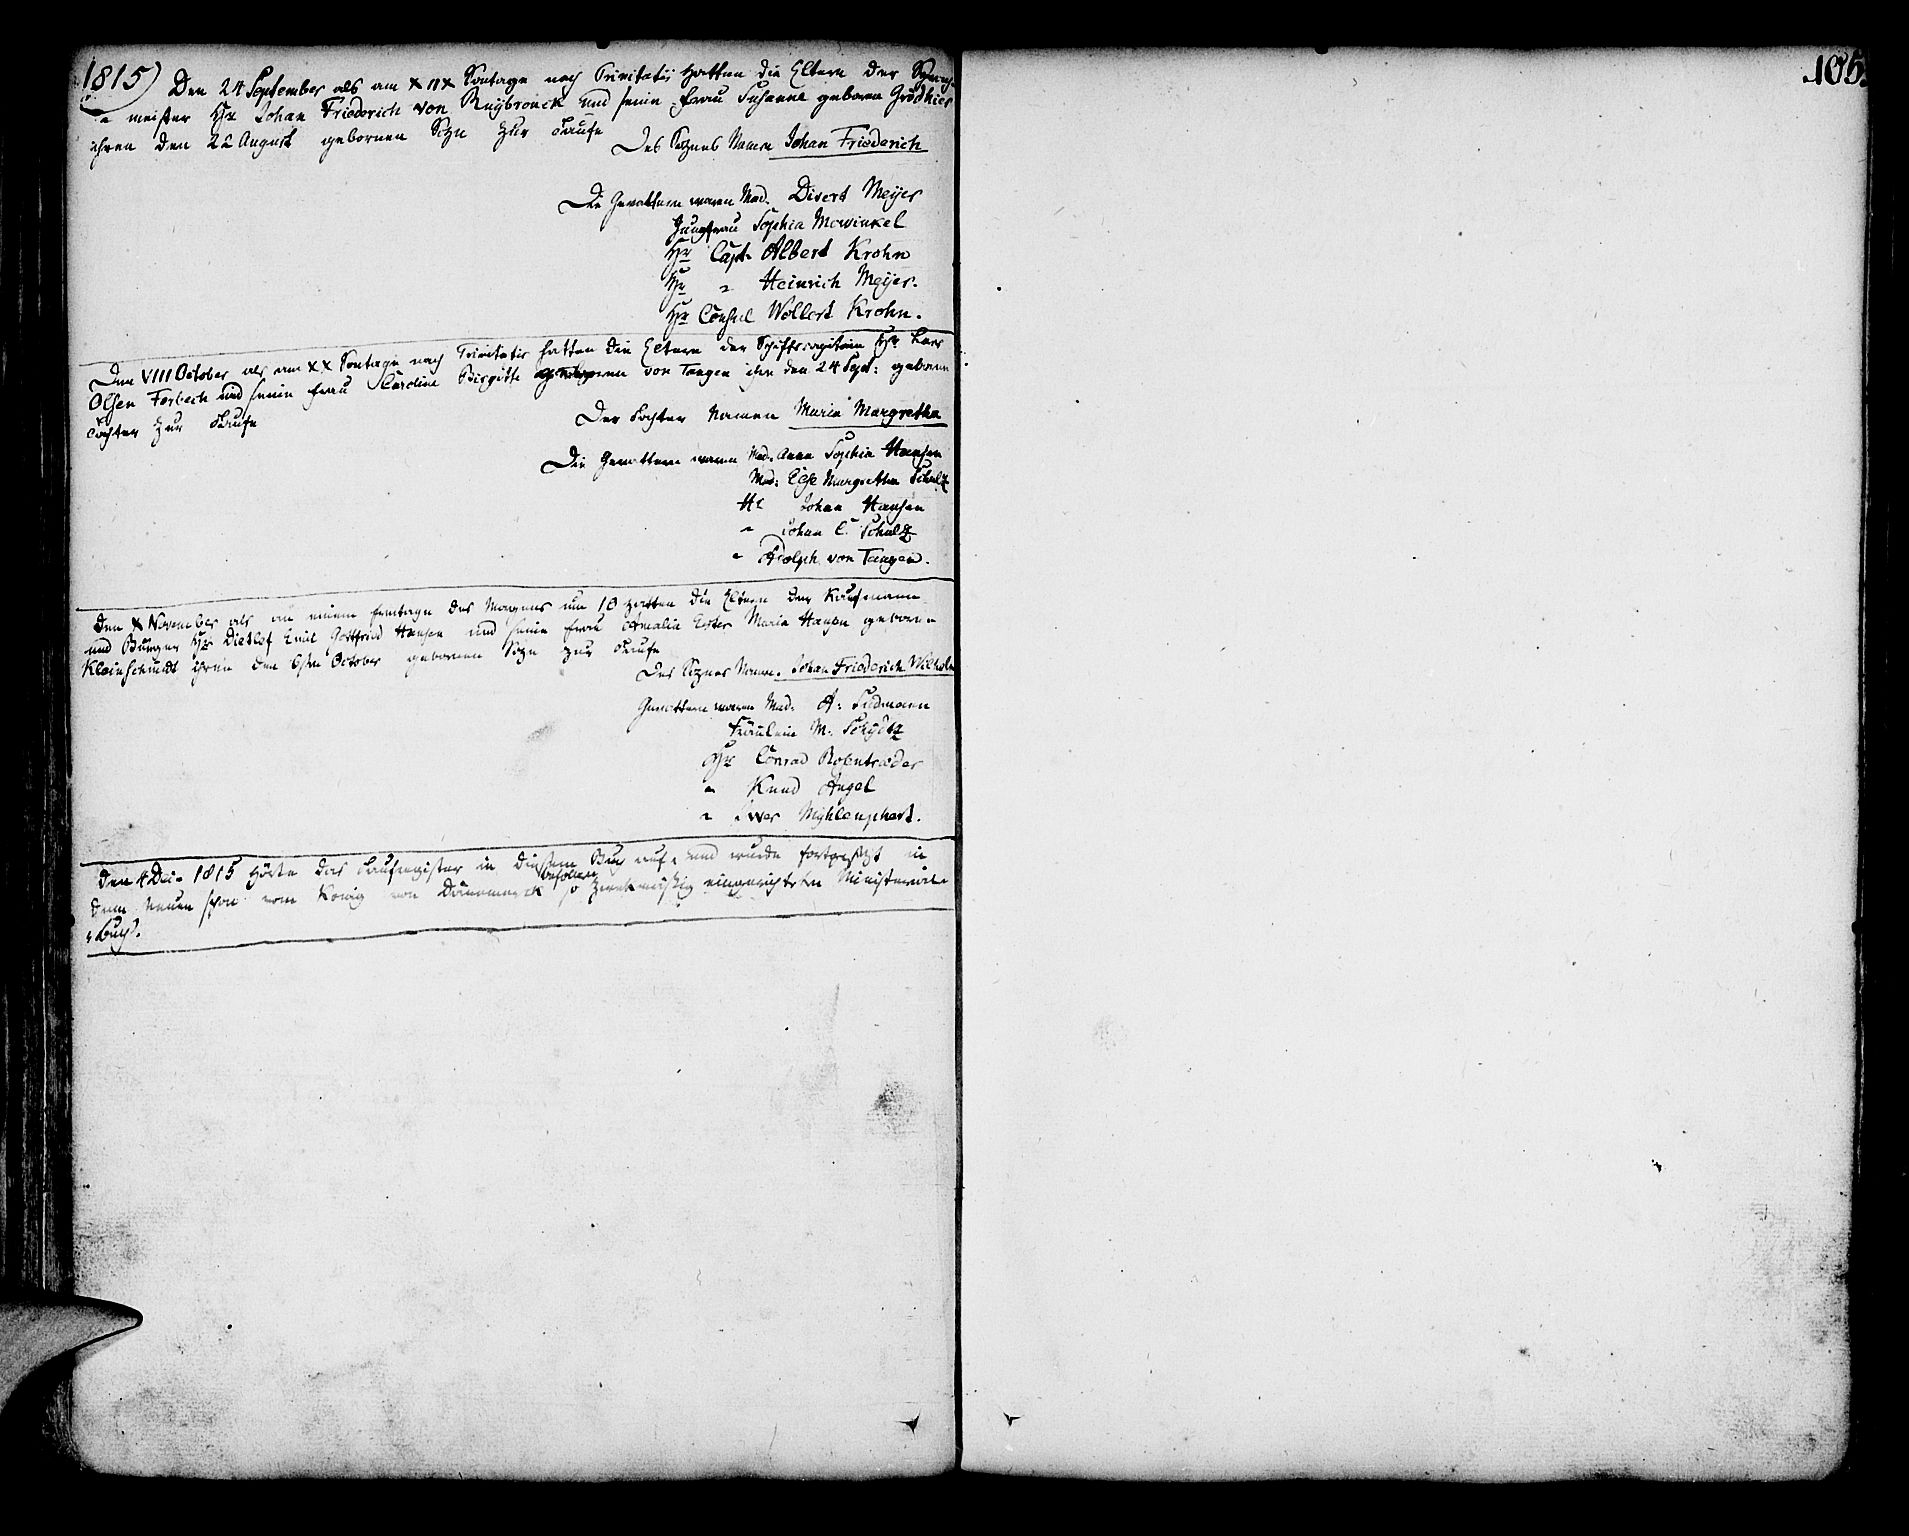 1815) Den 24 September als am XIIX Sontage nach Trinitatis hatten die Eltern der Sprach-
meister Hr Johan Friederich von Ruybronck und seine Frau Susanne geboren
ihren den 22 August gebornen Sohn zur Taufe
Des Sohnes Namen Johan Friederich
Die Gevattern waren Mad. Divert Meyer
Jungfrau Sophia Mowinkel
Hr Capt. Albert Krohn
Hr " Heinrich Meyer.
Hr Consul Wollert Krohn.
Den VIII October als am XX Sontage nach Trinitatis hatten die Eltern der Schiffscapitain Hr Lars
Olsen Forbech und seine Frau Caroline Birgitte geboren von Tangen ihre den 24 Sept: geborne
Tochter zur Taufe
Der Tochter Namen Maria Margretha
Die Gevattern waren Mad. Anna Sophia Hansen
Mad: Else Margretha Schultz
Hr Johan Hansen
" Johan C. Schultz
" Adolph von Tangen.
Den X November als an einem Freitage des Morgens um 10 hatten die Eltern der Kaufmann
und Burger Hr Dietlof Emil Gottfried Hansen und seine Frau Amalia Ester Maria Hansen geborne
Kleinschmidt ihren den 6ten October gebornen Sohn zur Taufe
Des Sohnes Name. Johan Friederich Wilhelm
Gevattern waren Mad: A: Sudmann
Fräulein M. Schydtz
Hr Conrad Robentræder
" Knud Angel
" Iver Myhlenphort.
Den 4 Dec. 1815 hörte das Taufregister in diesem Buch auf, und wurde fortgesetzt in
dem neuen schon vom König von Dänemarck befohlenen so zweckmässig eingerichteten Ministerial-
Buch.
105.